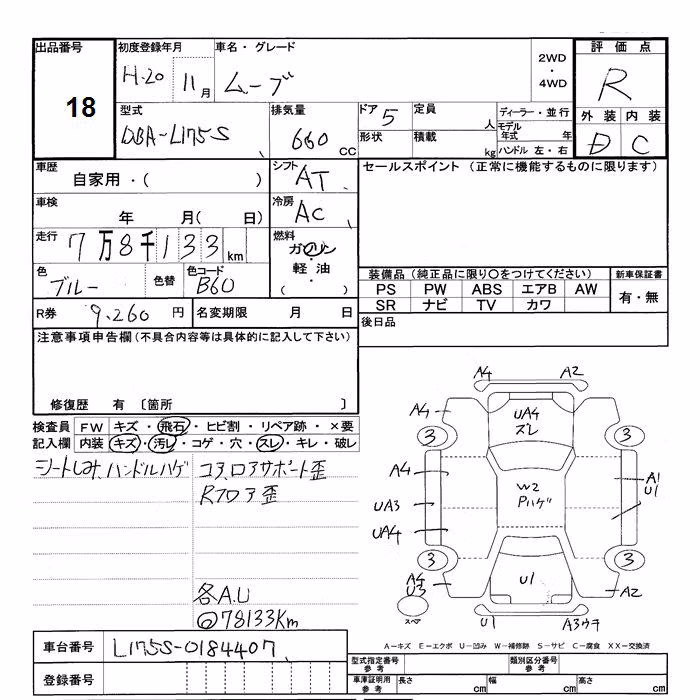 出品番号 初度登録年月 車名・グレード 評価点
18 H.20 11月 ムーブ 2WD ・ 4WD R
型式 排気量 ドア 定員 ディーラー・並行 外装 内装
DBA-L175S 660 CC 5 人 モデル年式 年 D C
形状 積載 kg ハンドル 左・右
車歴 シフト セールスポイント (正常に機能するものに限ります)
自家用・( ) AT
車検 冷房
年 月( 日) AC
走行 燃料
7万8千133km ガソリン・
色 色替 色コード 軽油・
ブルー B60 ( )
装備品 (純正品に限り○をつけてください) 新車保証書
PS PW ABS エアB AW 有・無
SR ナビ TV カワ
R券 9.260 円 名変期限 月 日 後日品
注意事項申告欄(不具合内容等は具体的に記入して下さい)
修復歴 有 〔箇所 〕
検査員 FW キズ・飛石・ヒビ割・リペア跡・×要
記入欄 内装 キズ・汚レ・コゲ・穴・スレ・キレ・破レ
シートしみ、ハンドルハゲ コア、ロアサポート歪
Rフロア歪
各A.U
◎78133Km
A4 A2
A4 UA4 ズレ
3 3
A4 A1 U1
W2 Pハゲ
UA3
UA4
3 3
A4 U3 U1 A2
スペア U1 A3ウチ
車台番号 L175S-0184407
A－キズ E－エクボ U－凹み W－補修跡 S－サビ C－腐食 XX－交換済
登録番号
型式指定番号 参考 類別区分番号 参考
車庫証明用 参考 長さ cm 幅 cm 高さ cm